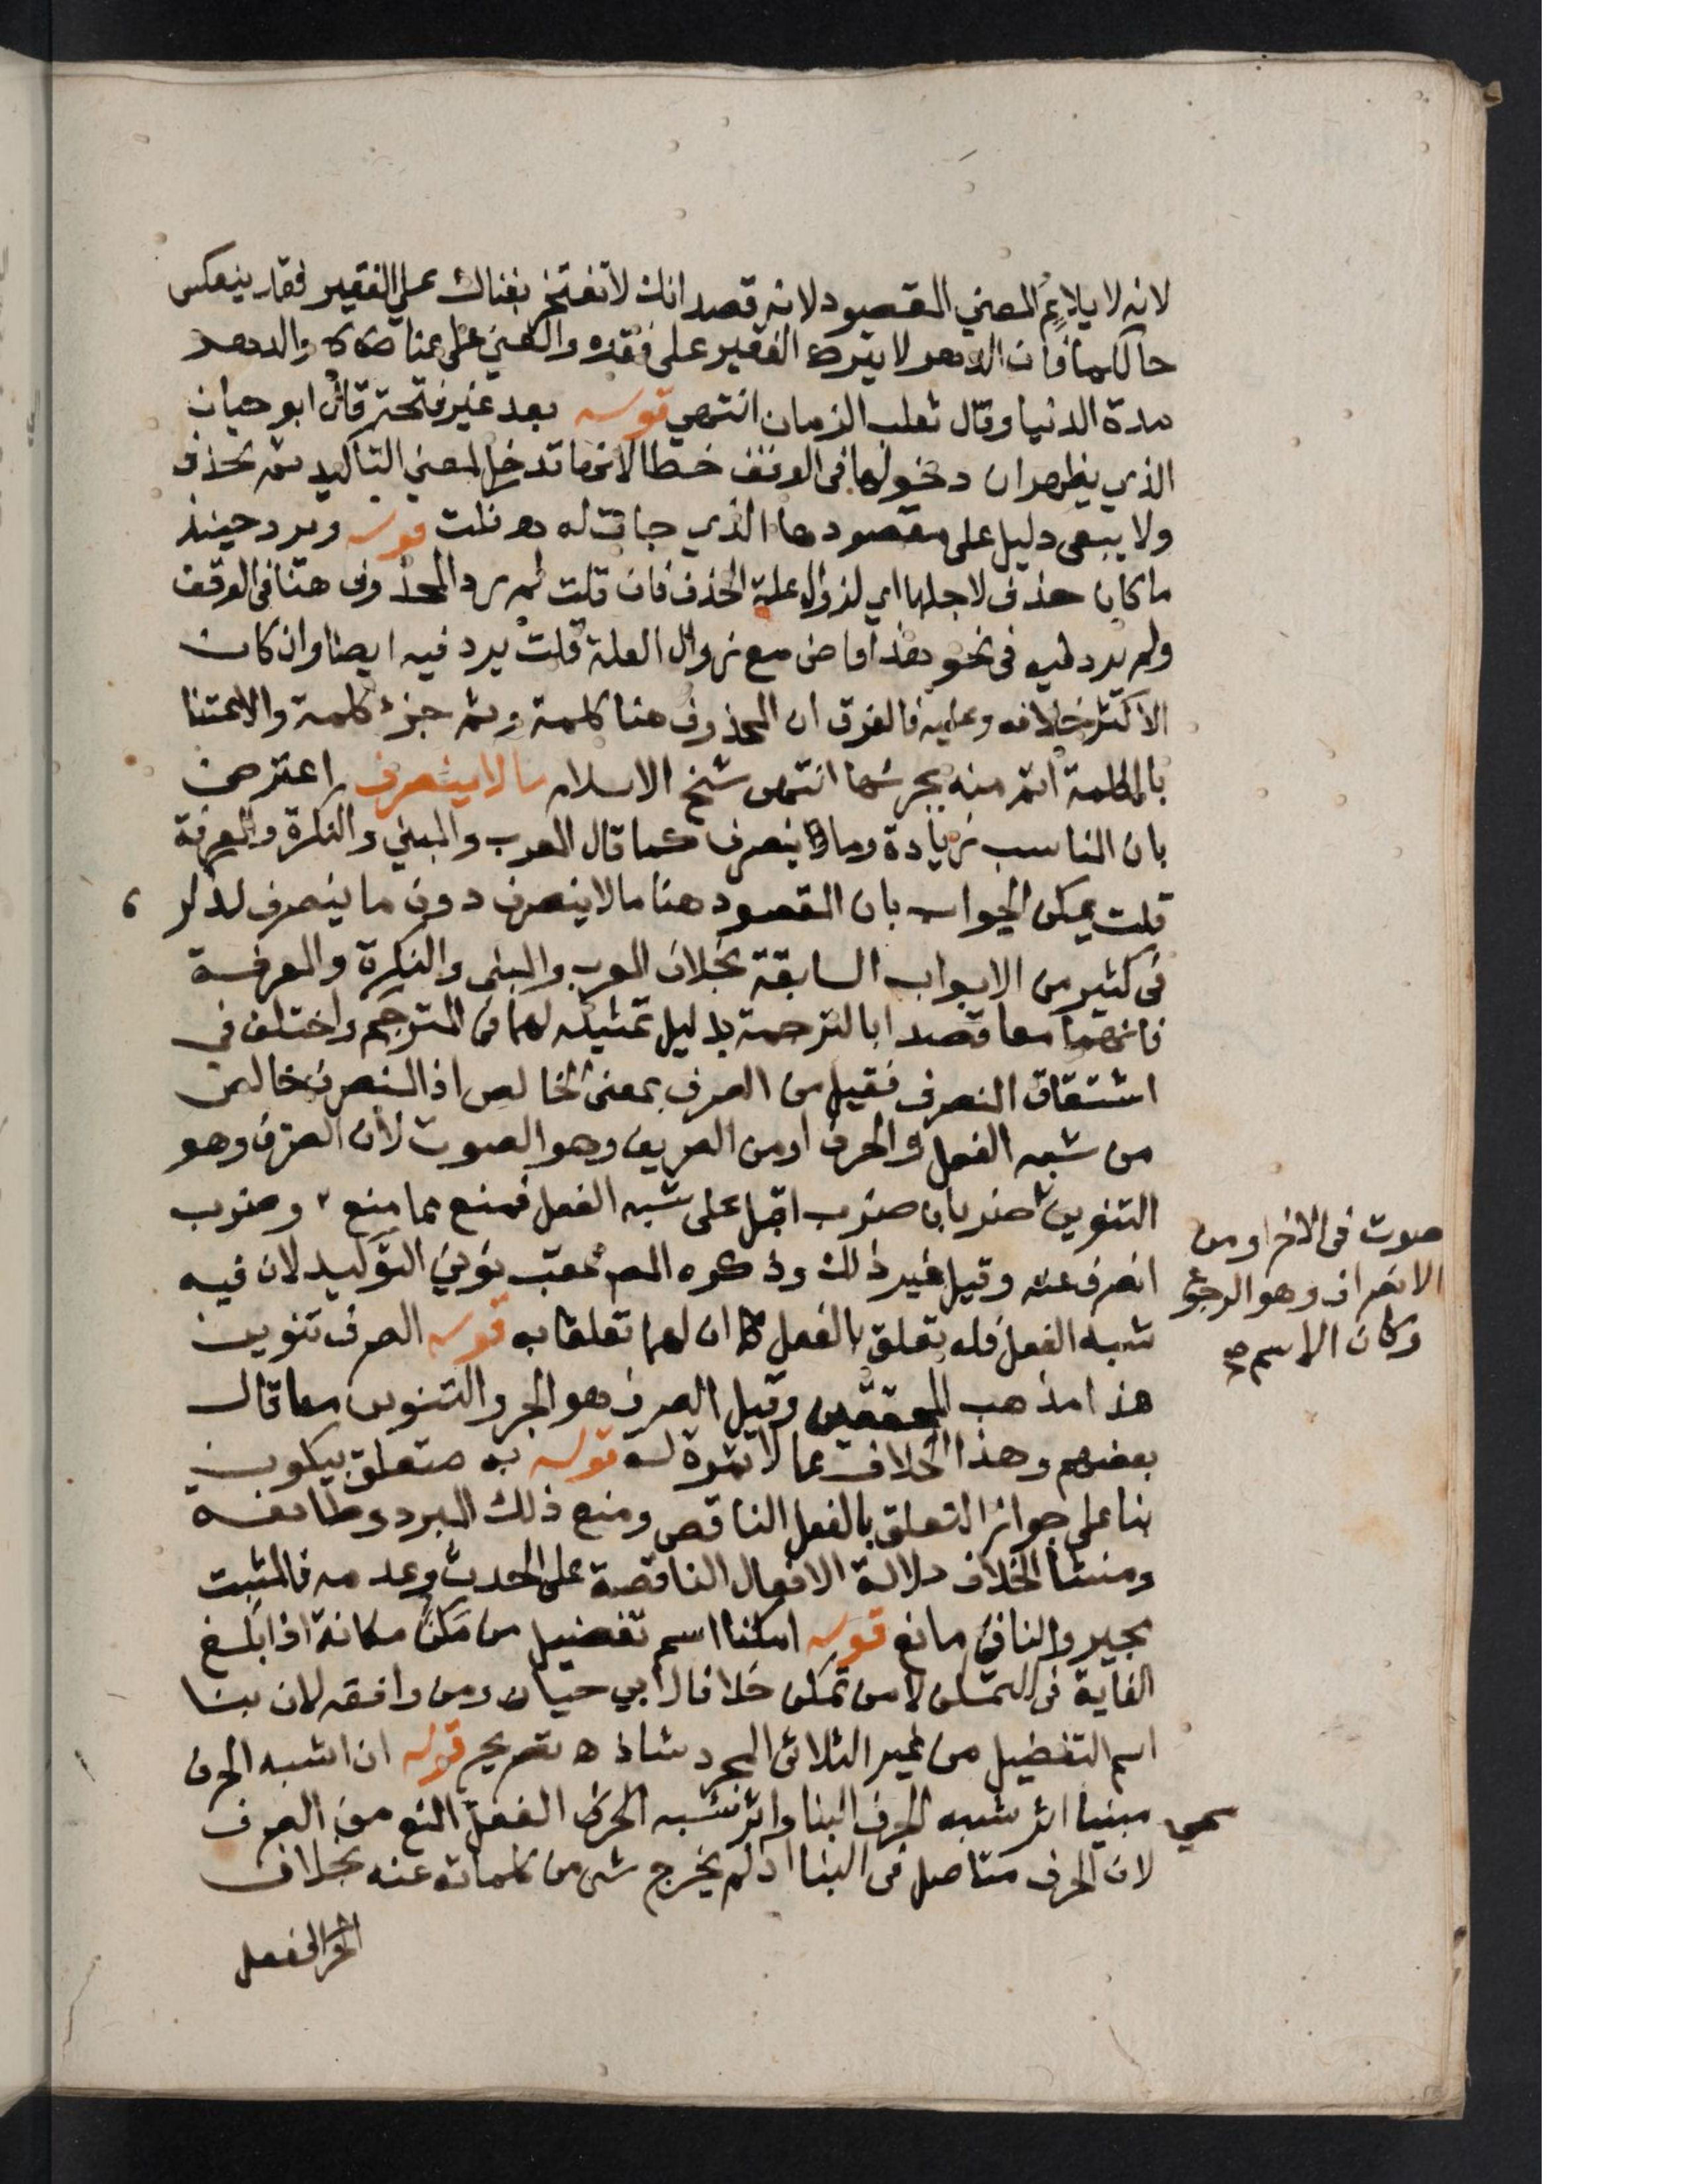 لانه لا يلايم المعني المقصود لانه قصد انك لا تفتخر بغناك على الفقير فقد ينعكس
حالكما فان الدهر لا يترك الفقير على فقره والغني على غناه والدهر
مدة الدنيا وقال ثعلب الزمان انتهي قوله بعد غير فتحة قال ابو حيان
الذي يظهر ان دخولها في الوقف خطا لانها تدخل لمعني التاكيد ثم تحذف
ولا يبقى دليل على مقصودها الذي جات له اه قلت قوله ويرد حينئذ
ما كان حذف لاجلها اي لزوال علة الحذف فان قلت لم يرد المحذوف هنا في الوقف
ولم يرد فيه في نحو هذا قاض مع زوال العلة قلت يرد فيه ايضا وان كان
الاكثر خلافه وعليه فالفرق ان المحذوف هنا كلمة وثم جزء كلمة والاعتنا
بالكلمة اتم منه بجزئها انتهى شيخ الاسلام ما لا ينصرف اعترض
بان المناسب زيادة وما ينصرف كما قال المعرب والمبني والنكرة والمعرفة
قلت يمكن الجواب بان المقصود هنا ما لا ينصرف دون ما ينصرف لذكره
في كثير من الابواب السابقة بخلاف المعرب والمبنى والنكرة والمعرفة
فانهما معا قصدا بالترجمة بدليل تمثيله لهما في المترجم واختلف في
اشتقاق المنصرف فقيل من الصرف بمعنى الخالص اذ المنصرف خالص
من شبه الفعل والحرف او من الصريف وهو الصوت لان الصرف وهو
التنوين صوت في الاخر او من
الانصراف وهو الرجوع
وكان الاسم صح
ضربان ضرب اقبل على شبه الفعل فمنع مما منع وضرب
انصرف عنه وقيل غير ذلك وذكره المصـ عقب نوني التوكيد لان فيه
شبه الفعل فله تعلق بالفعل كما ان لهما تعلقا به قوله الصرف تنوين
هذا مذهب المحققين وقيل الصرف هو الجر والتنوين معا قال
بعضهم وهذا الخلاف مما لا ثمرة له قوله به متعلق بيكون
بنا على جواز التعلق بالفعل الناقص ومنع ذلك المبرد وطائفة
ومنشا الخلاف دلالة الافعال الناقصة على الحدث وعدمه فالمثبت
مجيز والنافي مانع قوله امكنا اسم تفضيل من مكن مكانة اذا بلغ
الغاية في التمكن لا من تمكن خلافا لابي حيان ومن وافقه لان بنا
اسم التفضيل من غير الثلاثي المجرد شاذ اه تصريح قوله ان اشبه الحرف
سمي مبنيا اثر شبه الحرف البنا واثر شبه الفعل المنع من الصرف
لان الحرف متاصل في البنا اذ لم يخرج شى من كلماته عنه بخلاف
الفعل